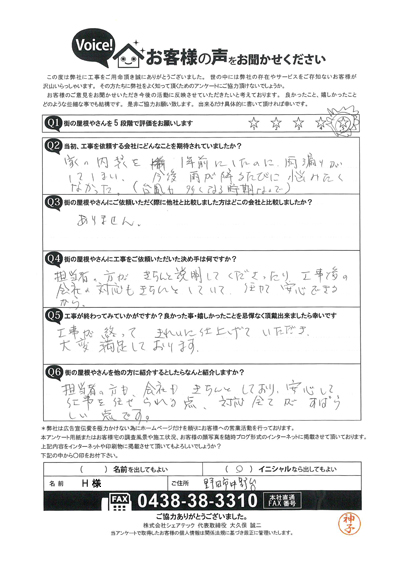 Voice!
お客様の声をお聞かせください
この度は弊社に工事をご用命頂き誠にありがとうございました。世の中には弊社の存在やサービスをご存知ないお客様が
沢山いらっしゃいます。その方たちに弊社をよく知って頂くためのアンケートにご協力頂けないでしょうか。
お客様のご意見をお聞かせいただき今後の活動に反映させていただきたいと考えております。良かったこと、嬉しかったこと
どのような些細な事でも結構です。是非ご協力お願い致します。出来るだけ具体的に書いて頂ければ幸いです。
Q1 街の屋根やさんを5段階で評価をお願いします
☆ ☆ ☆ ☆ ☆
Q2 当初、工事を依頼する会社にどんなことを期待されていましたか?
家の内装を 1年前にしたのに、雨漏りが
してしまい、今後 雨が降るたびに 悩みたく
なかった。(台風も多くなる時期なので)
Q3 街の屋根やさんにご依頼いただく際に他社と比較しました方はどこの会社と比較しましたか?
ありません。
Q4 街の屋根やさんに工事をご依頼いただいた決め手は何ですか?
担当者の方が きちんと説明して くださったり、工事後の
会社の対応もきちんとしていて、任せて安心できる
から。
Q5 工事が終わってみていかがですか?良かった事・嬉しかったことを忌憚なく頂戴出来ましたら幸いです
工事が終って きれいに仕上げて いただき、
大変満足しております。
Q6 街の屋根やさんを他の方に紹介するとしたらなんと紹介しますか?
担当者の方も、会社も きちんとしており、安心して
仕事を任せられる点、対応全てが すばら
しい点です。
*弊社は広告宣伝費を極力かけない為にホームページだけを頼りにお客様への営業活動を行っております。
本アンケート用紙またはお客様宅の調査風景や施工状況、お客様の顔写真を随時ブログ形式のインターネットに掲載させて頂いております。
上記内容をインターネットや印刷物に掲載させて頂いてもよろしいでしょうか?
下記の中から〇印をお付下さい。
( ) 名前を出してもよい ( 〇 ) イニシャルなら出してもよい
名前 H 様 ご住所 野田市中野台
FAX 0438-38-3310 本社直通 FAX番号
ご協力ありがとうございました。
株式会社シェアテック 代表取締役 大久保 誠二
当アンケートで取得したお客様の個人情報は関係法規に基づき厳正に管理いたします。
神子